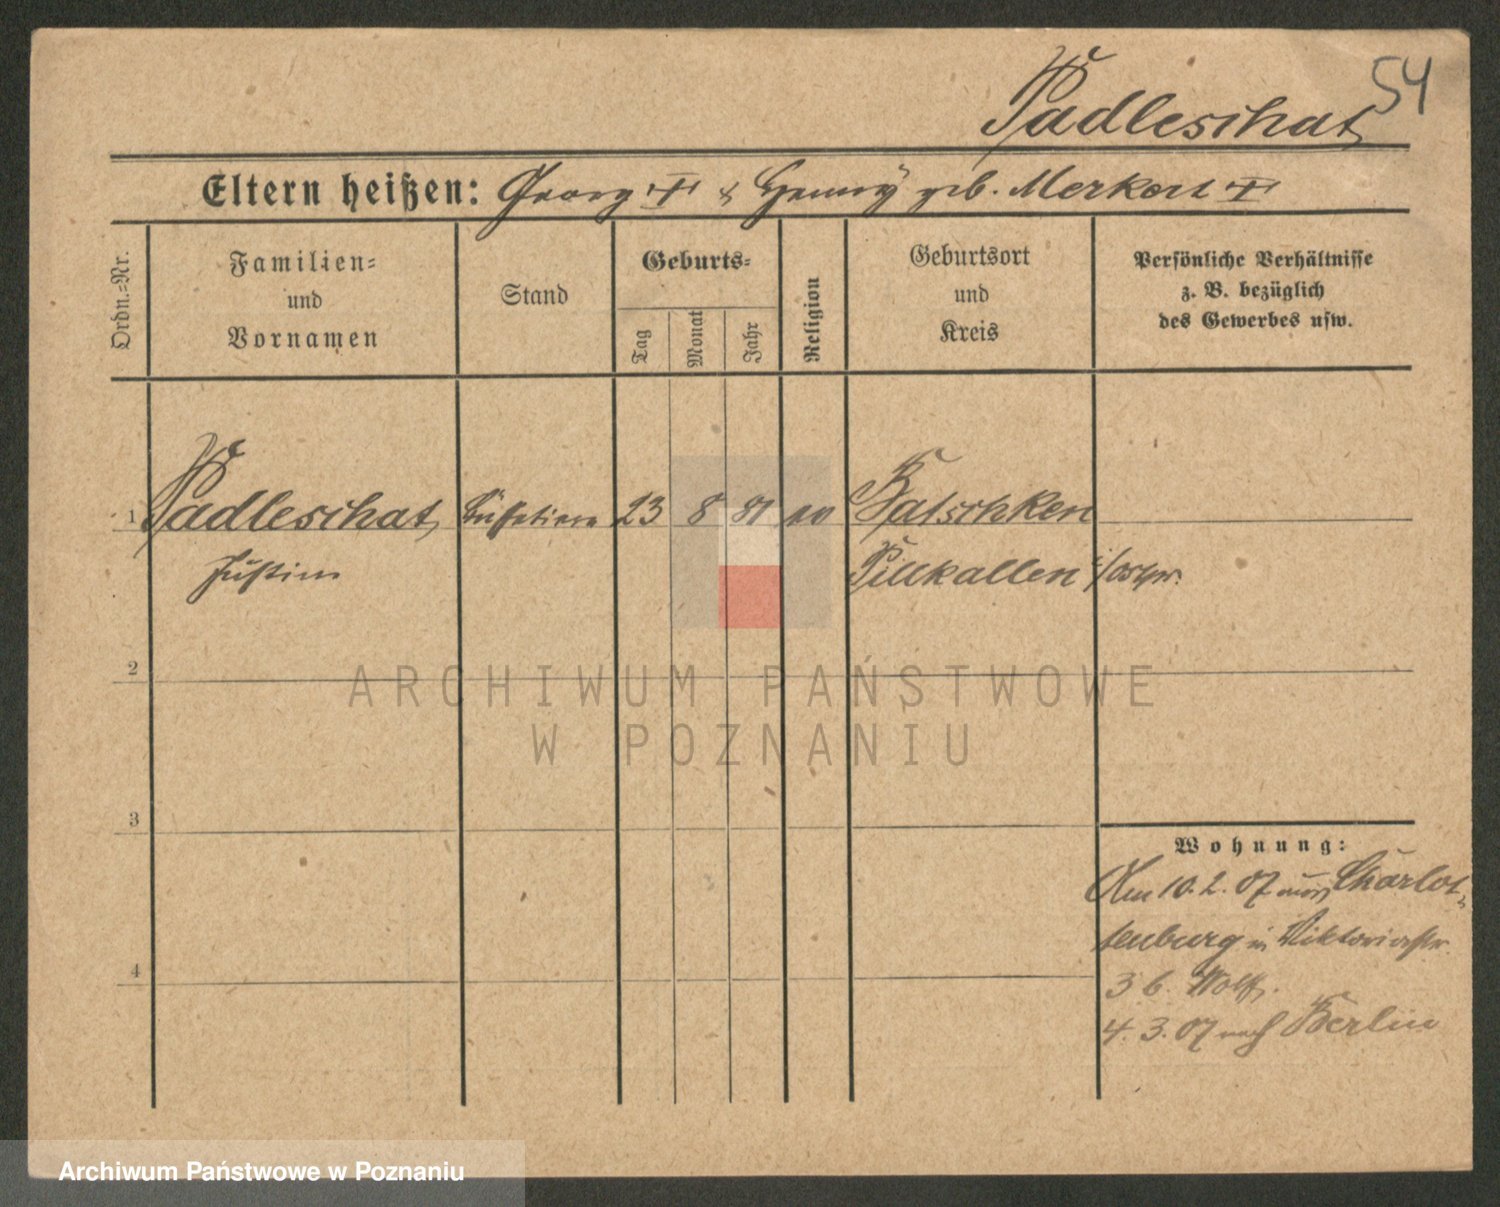 54
Padleschat
Eltern heißen: Georg † & Henny geb. Merkert †
Ordn.-Nr.
Familien- und Vornamen
Stand
Geburts-
Tag
Monat
Jahr
Religion
Geburtsort und Kreis
Persönliche Verhältnisse z. B. bezüglich des Gewerbes usw.
1 Padleschat, Büfetiere 23 8 81 ev Batschken
Justine Pillkallen i/Ostpr.
2
ARCHIWUM PAŃSTWOWE
W POZNANIU
3
Wohnung:
Am 10.2.07 von Charlot-
tenburg in Viktoriastr.
3 b. Wolff.
4
4.3.07 nach Berlin
Archiwum Państwowe w Poznaniu